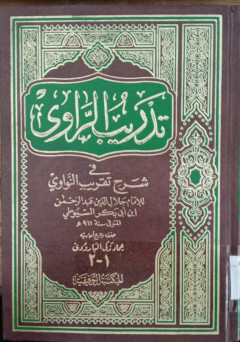 تدريب الراوي
في
شرح تقريب النواوي
للإمام جلال الدين عبد الرحمن
ابن أبي بكر السيوطي
المتوفى سنة ٩١١ هـ
عماد زكي البارودي
١-٢
المكتبة التوفيقية